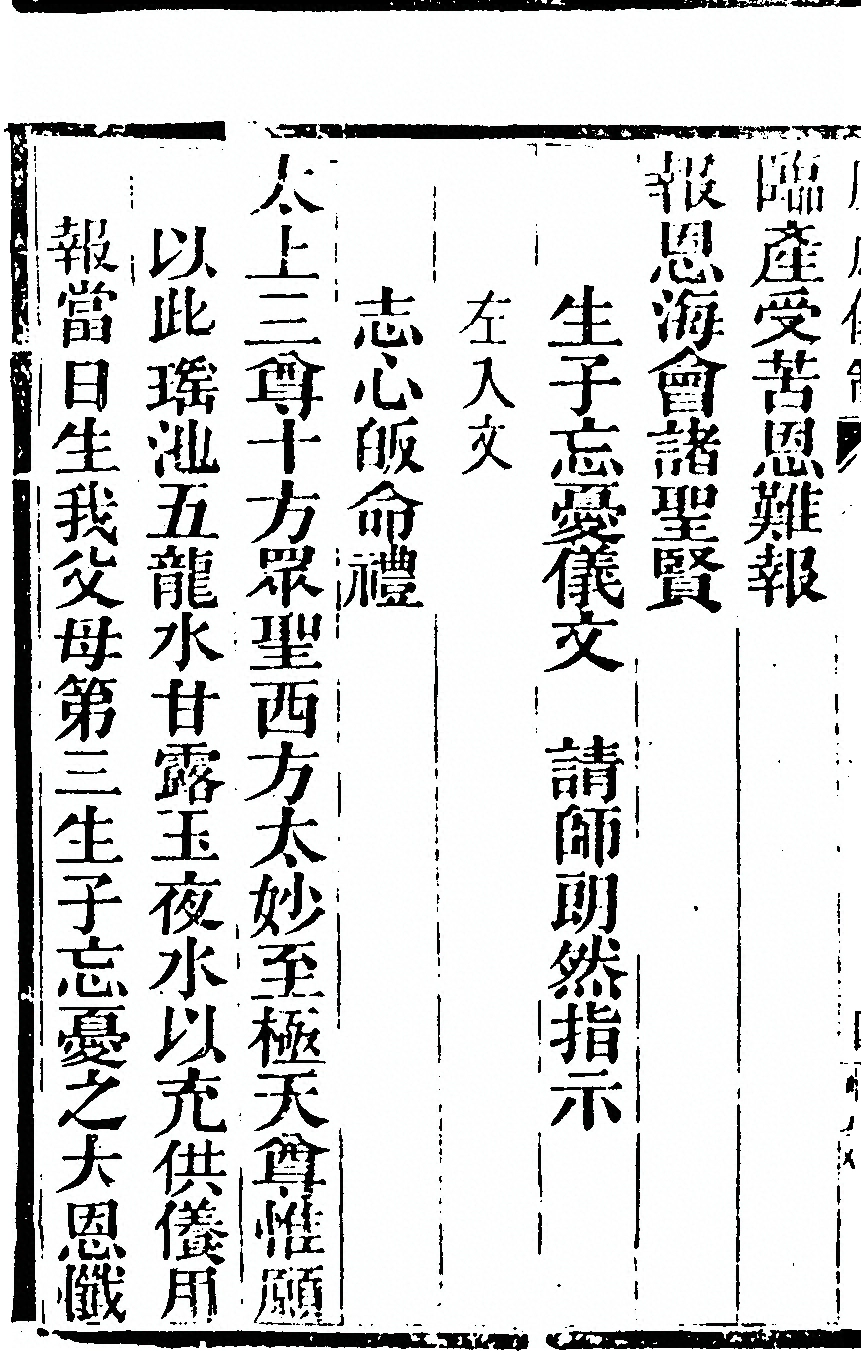 臨產受苦恩難報
報恩海會諸聖賢
生子忘憂儀文　請師朗然指示
左入文
志心皈命禮
太上三尊十方眾聖西方太妙至極天尊惟願
以此瑤池五龍水甘露玉夜水以充供養用
報當日生我父母第三生子忘憂之大恩懺